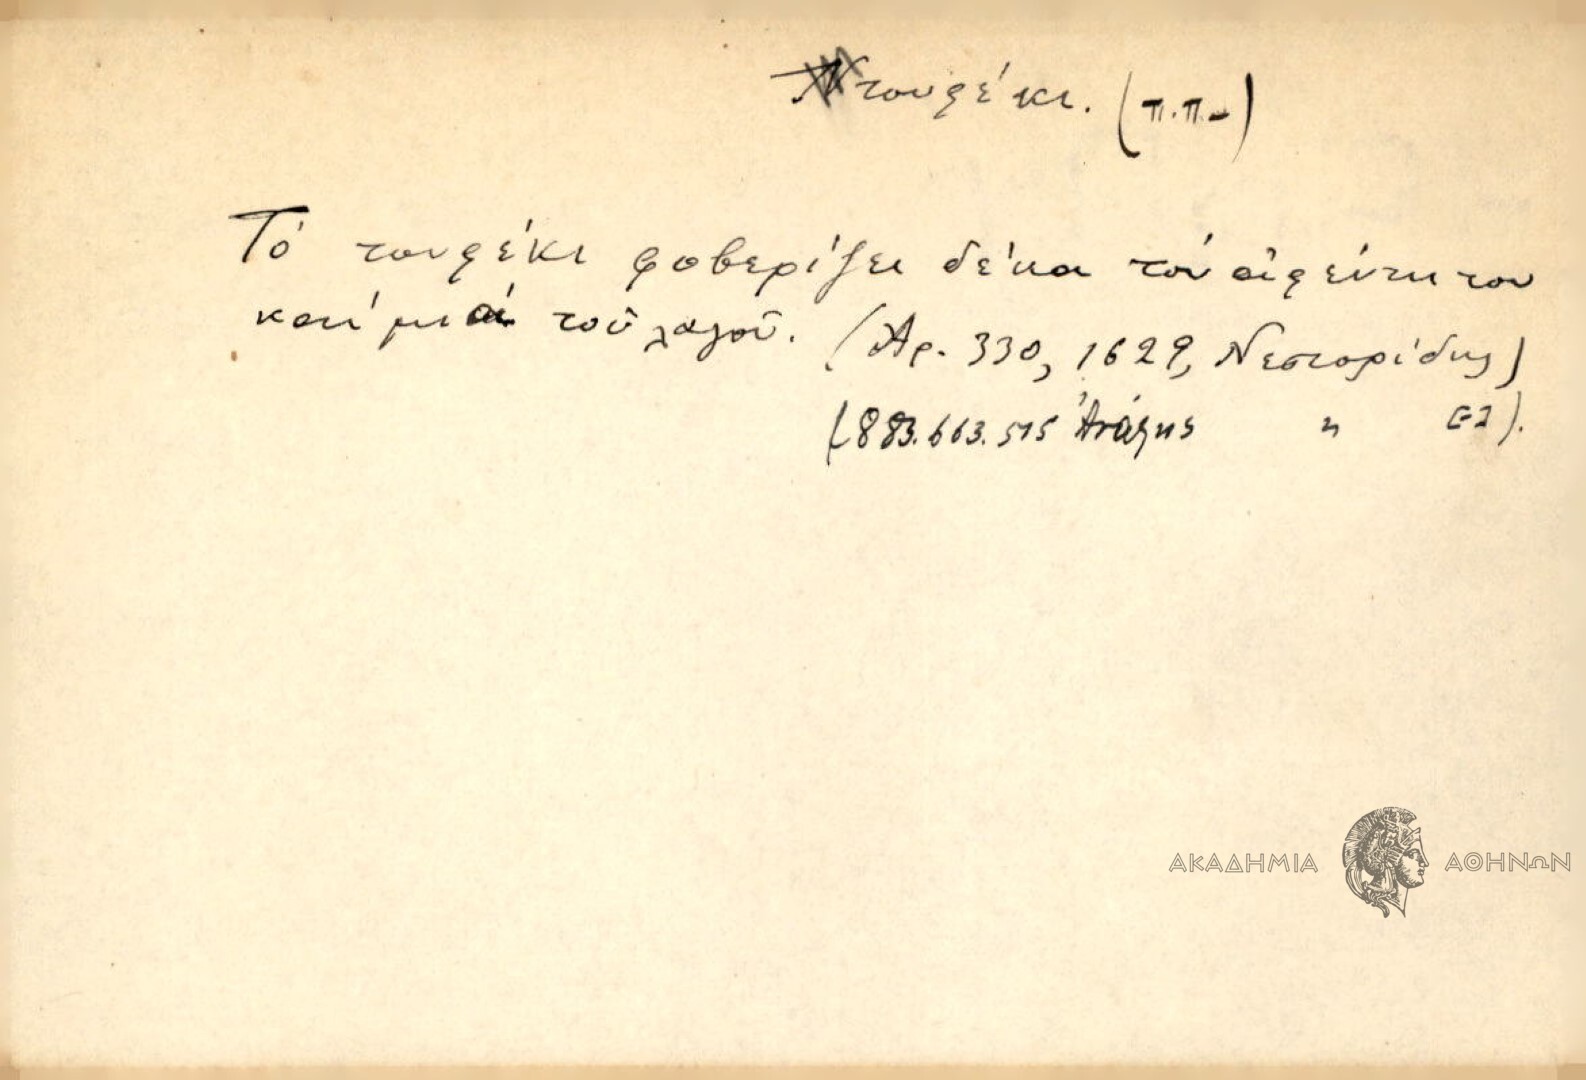 τουφέκι. (π.π.)
Τό τουφέκι φοβερίζει δέκα τόν ἀφέντη του
καί μιά τοῦ λαγοῦ. (Ἀρ. 330, 1629, Νεστορίδης)
(883.663.515 〃 ).
ΑΚΑΔΗΜΙΑ ΑΘΗΝΩΝ